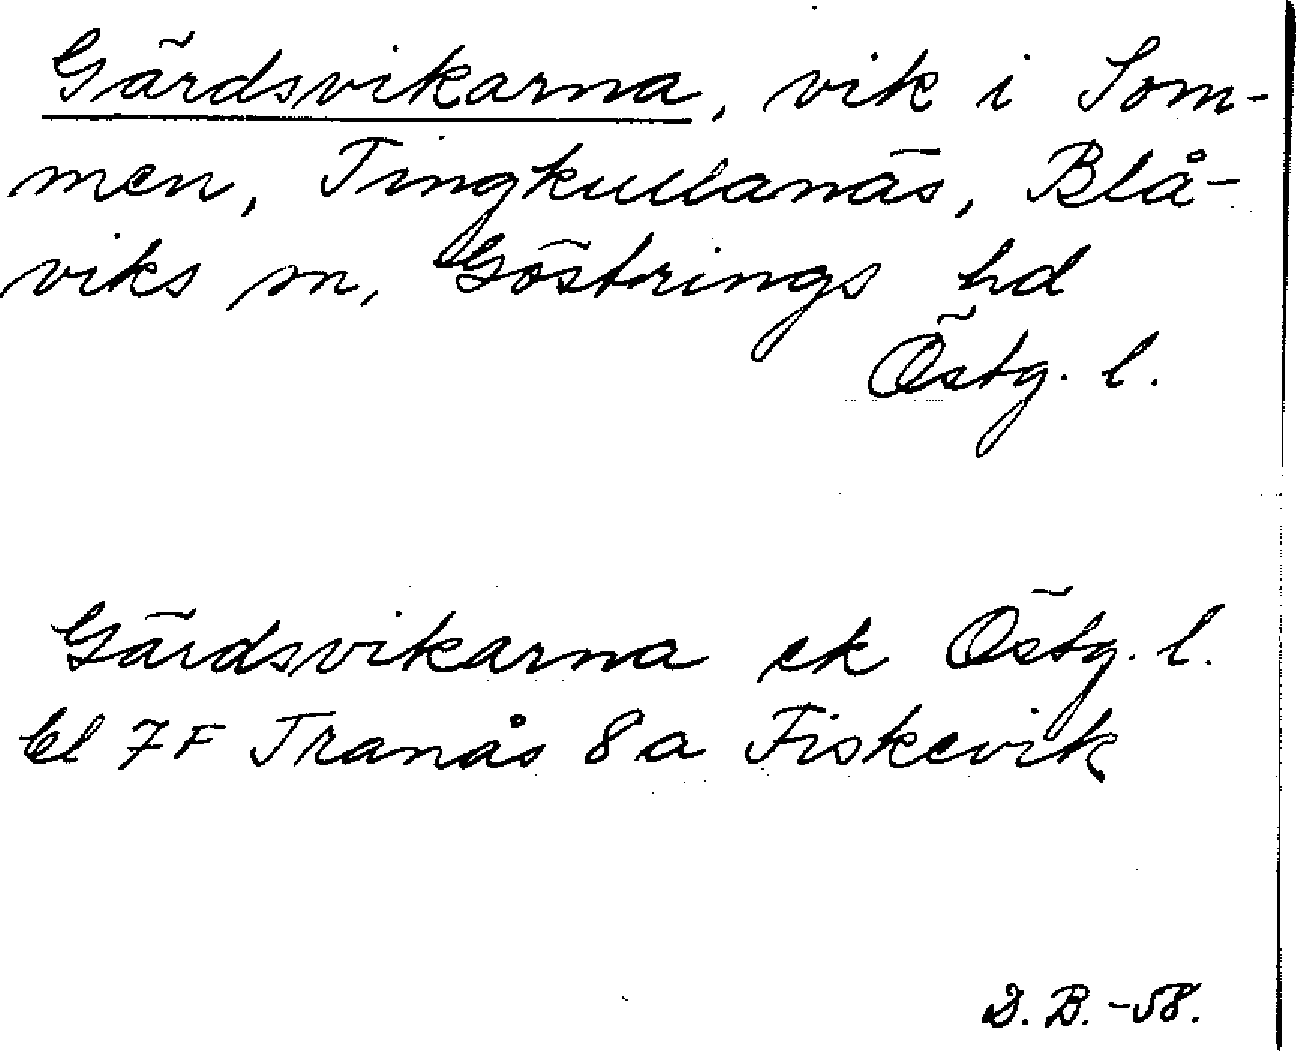 Gärdsvikarna, vik i Som-
men, Tingkullanäs, Blå-
viks sn, Göstrings hd
Östg. l.
Gärdsvikarna ek Östg. l.
bl 7F Tranås 8a Fiskevik
D. B. -58.